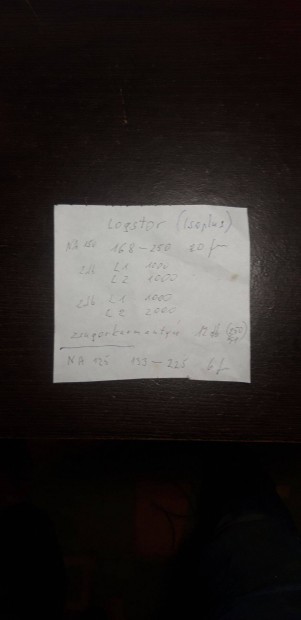 Logstor (Isoplus)
NA 150 168-250 20 fm
2db L1 1000
L2 1000
2db L1 1000
L2 2000
zsugorkarmantyú 12 db
NA 125 133-225 6 f